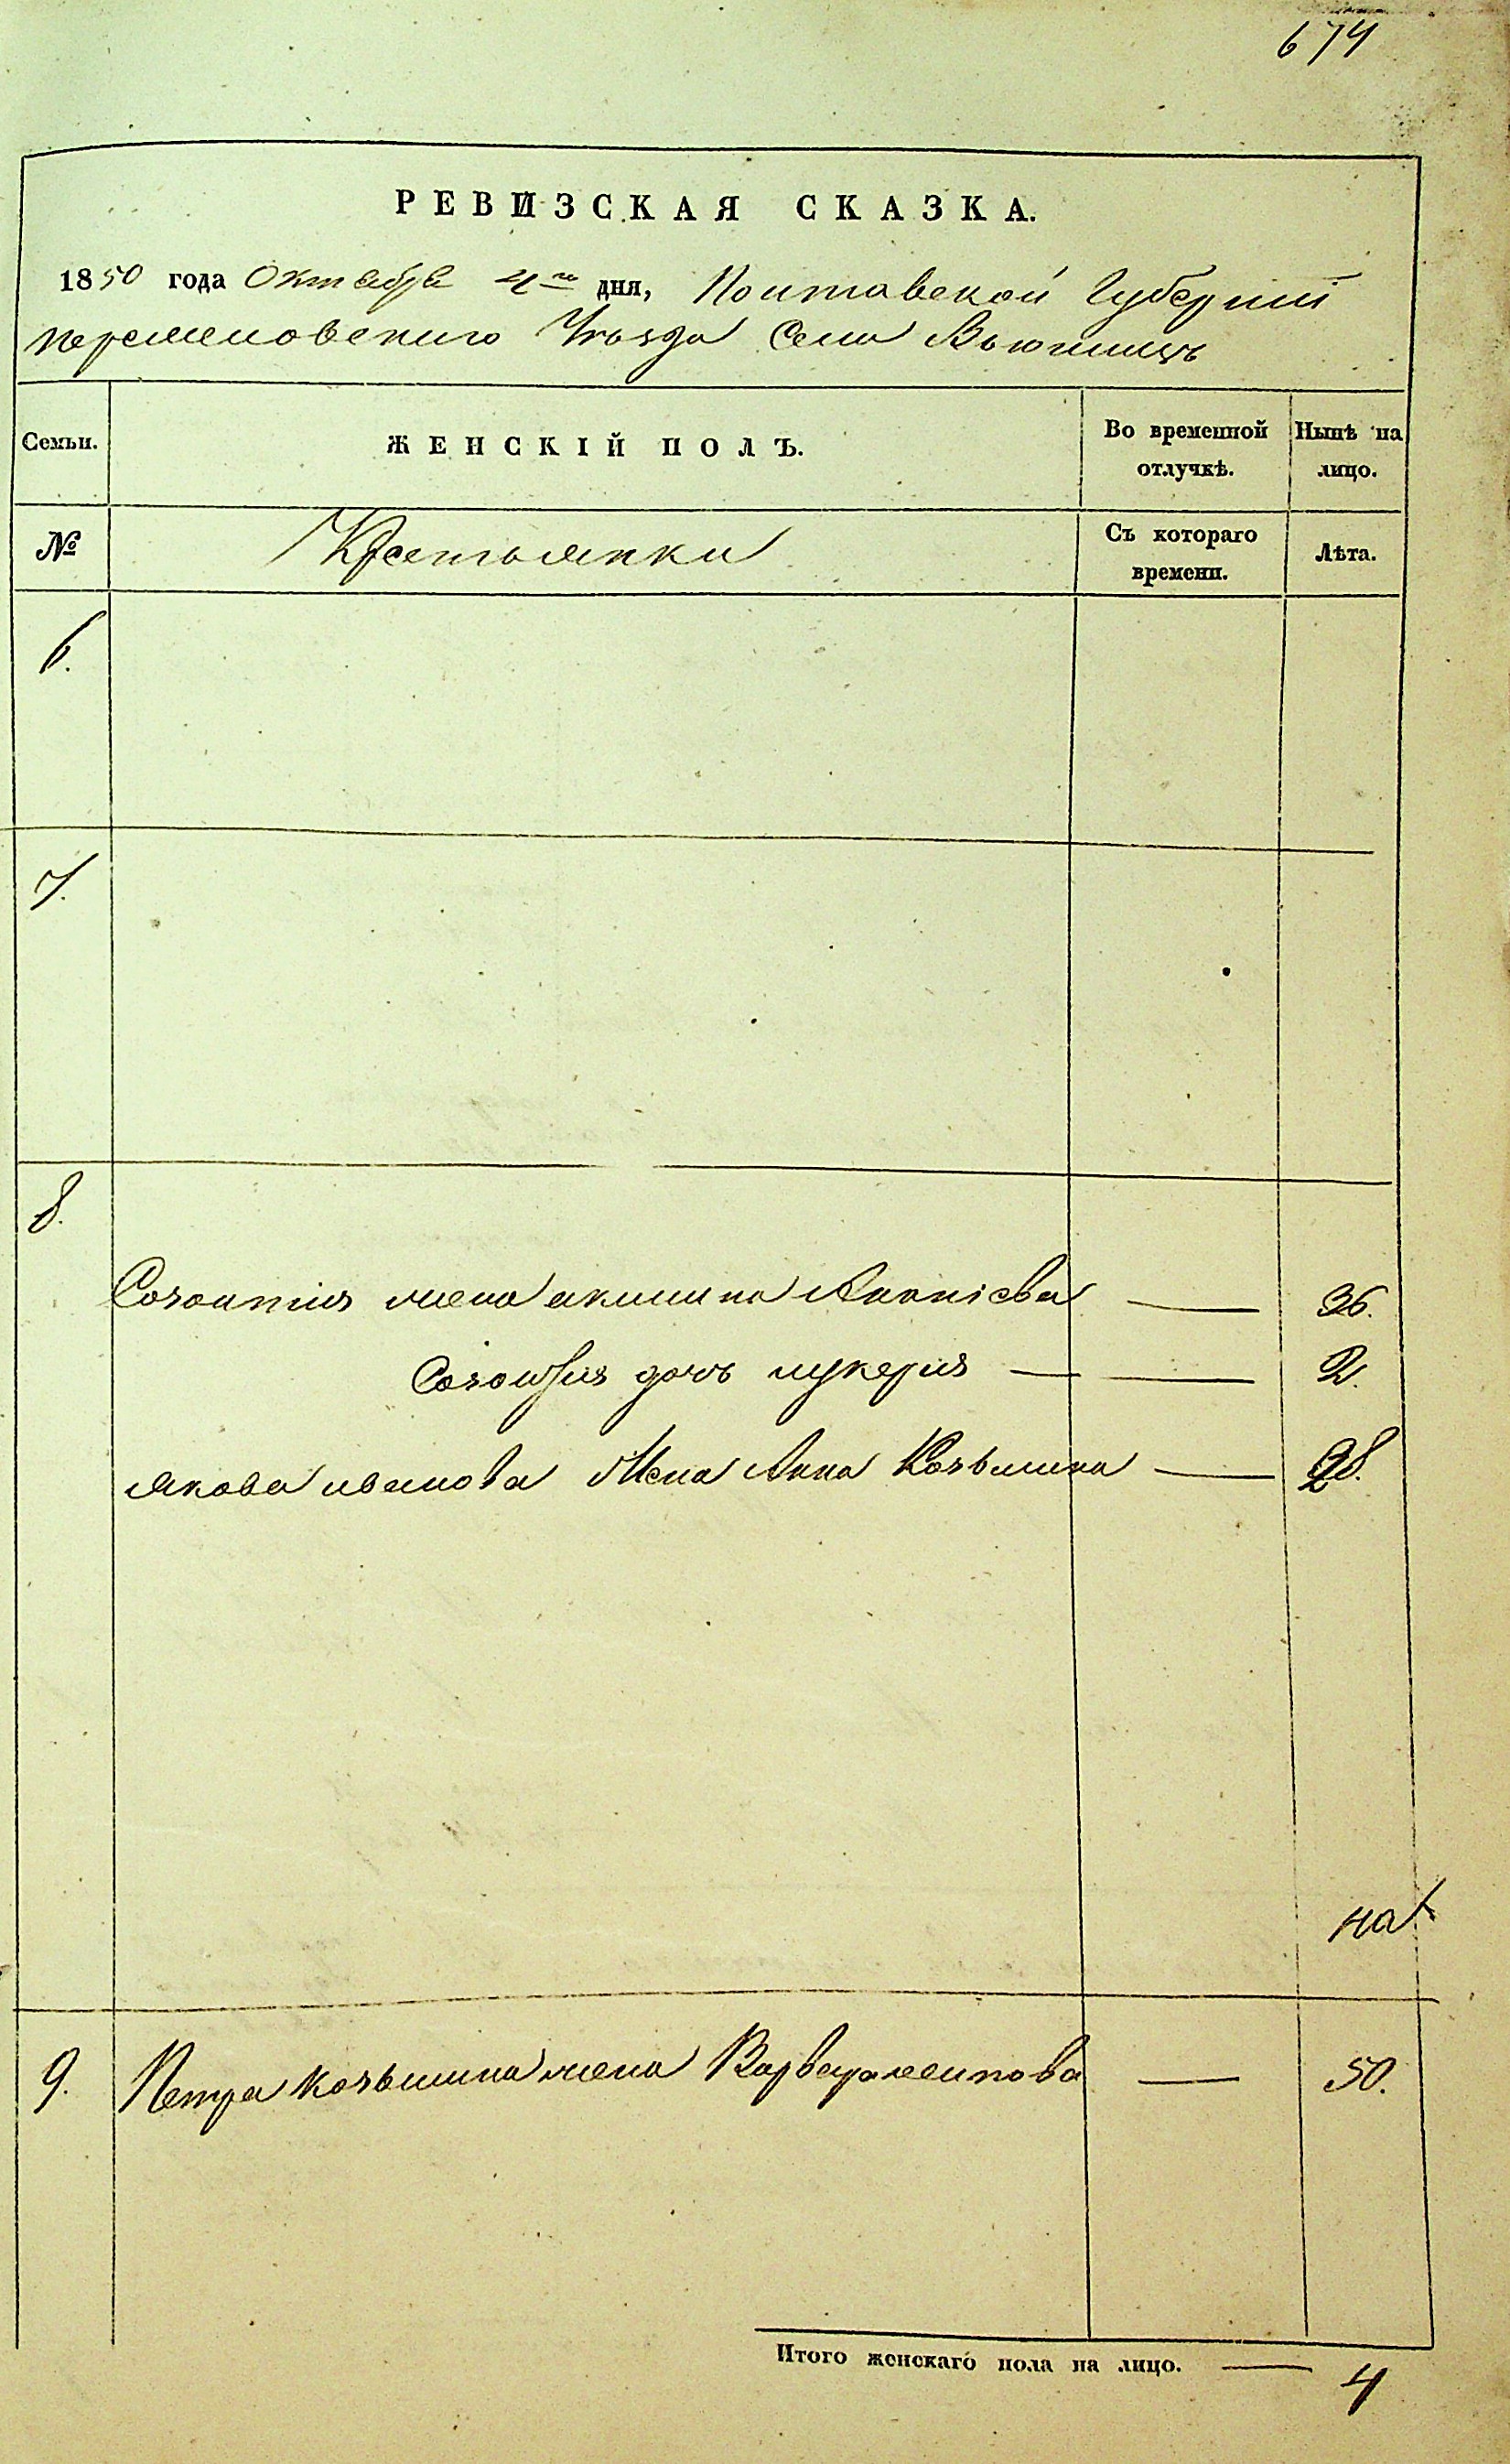 674
РЕВИЗСКАЯ СКАЗКА.
1850 года Октября 4го дня, Полтавской Губернии
переяславского Уезда Села Вьюнищъ
Семьи.
ЖЕНСКІЙ ПОЛЪ.
Во временной отлучкѣ.
Нынѣ на лицо.
№
Крестьянки
Съ котораго времени.
Лѣта.
6.
7.
8.
Созонтия жена акилина Ананіева — 36.
Созонтия дочь лукерия — 2.
якова иванова Жена Анна Козьмина — 28.
на
9. Петра козьмина жена Варвара — 50.
Итого женскаго пола на лицо. — 4